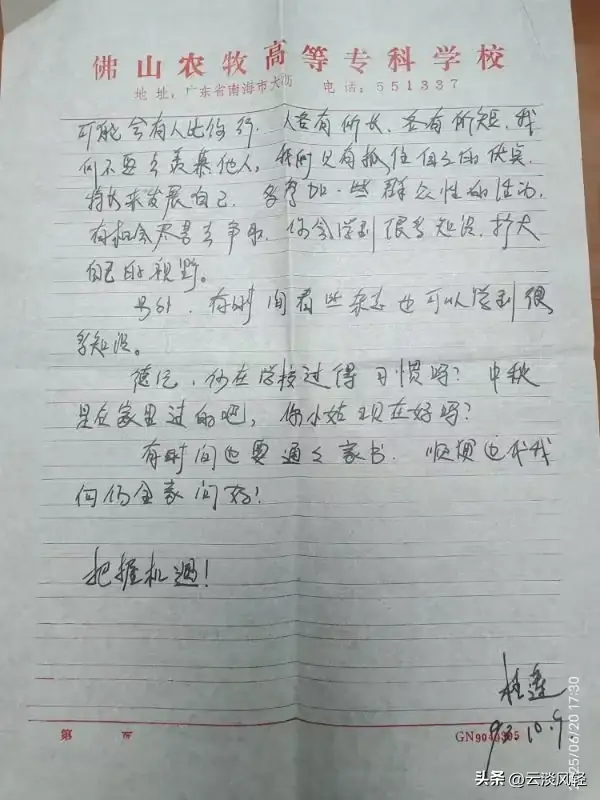 佛山农牧高等专科学校
地址：广东省南海市大沥 电话：551337
可能会有人比你行．人各有所长，各有所短，我
们不要去羡慕他人，我们只有抓住自己的优点、
特长来发展自己．多参加一些群众性的活动，
有机会尽善去争取．你会学到很多知识．扩大
自己的视野。
另外，有时间看些杂志也可以学到很
多知识。
德，你在学校过得习惯吗？中秋
是在家里过的吧，你小姑现在好吗？
有时间也要通通家书．顺便也代我
向你全家问好！
把握机遇！
桂莲
93.10.9
第 页
GN9040905
2025/06/20 17:30
头条 @云淡风轻